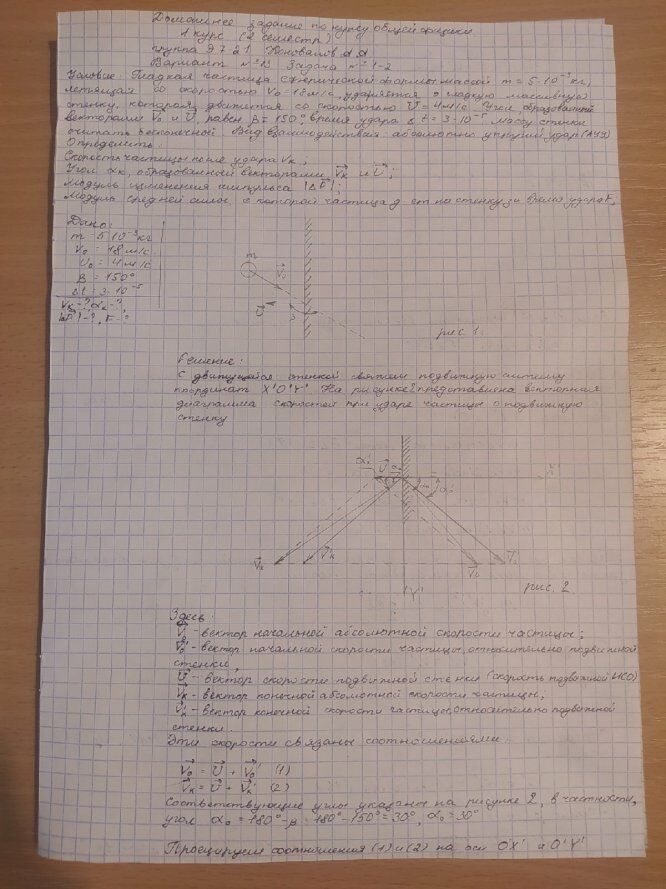 Домашнее задание по курсу общей физики
1 курс (2 семестр)
группа Э7-21 Коновалов
Вариант №13 Задача №1-2
Условие: Гладкая частица сферической формы массой m = 5·10⁻³ кг,
летящая со скоростью V₀ = 18 м/с, ударяется о гладкую массивную
стенку, которая движется со скоростью U = 4 м/с. Угол, образованный
векторами V₀ и U, равен β = 150°, время удара Δt = 3·10⁻⁵, массу стенки
считать бесконечной. Вид взаимодействия: абсолютно упругий удар (АУУ)
Определить:
Скорость частицы после удара Vк;
Угол αк, образованный векторами Vк и U;
Модуль изменения импульса |ΔP|;
Модуль средней силы, с которой частица действ на стенку за время удара F,
Дано:
m = 5·10⁻³ кг
V₀ = 18 м/с
U₀ = 4 м/с
β = 150°
Δt = 3·10⁻⁵
Vк-?, αк-?,
|ΔP|-?, F-?
m
V₀
U
рис 1.
Решение:
С движущейся стенкой свяжем подвижную систему
координат X'O'Y'. На рисунке 2 представлена векторная
диаграмма скоростей при ударе частицы о подвижную
стенку
U
Vк
V'к
V₀
Y'
рис. 2
Здесь:
V₀ - вектор начальной абсолютной скорости частицы;
V₀' - вектор начальной скорости частицы, относительно подвижной
стенки;
U - вектор скорости подвижной стенки (скорость подвижной ИСО)
Vк - вектор конечной абсолютной скорости частицы;
Vк' - вектор конечной скорости частицы, относительно подвижной
стенки.
Эти скорости связаны соотношениями
V₀ = U + V₀' (1)
Vк = U + Vк' (2)
Соответствующие углы указаны на рисунке 2, в частности,
угол α₀ = 180° - β = 180° - 150° = 30°, α₀ = 30°
Проецируем соотношения (1) и (2) на оси O'X' и O'Y'